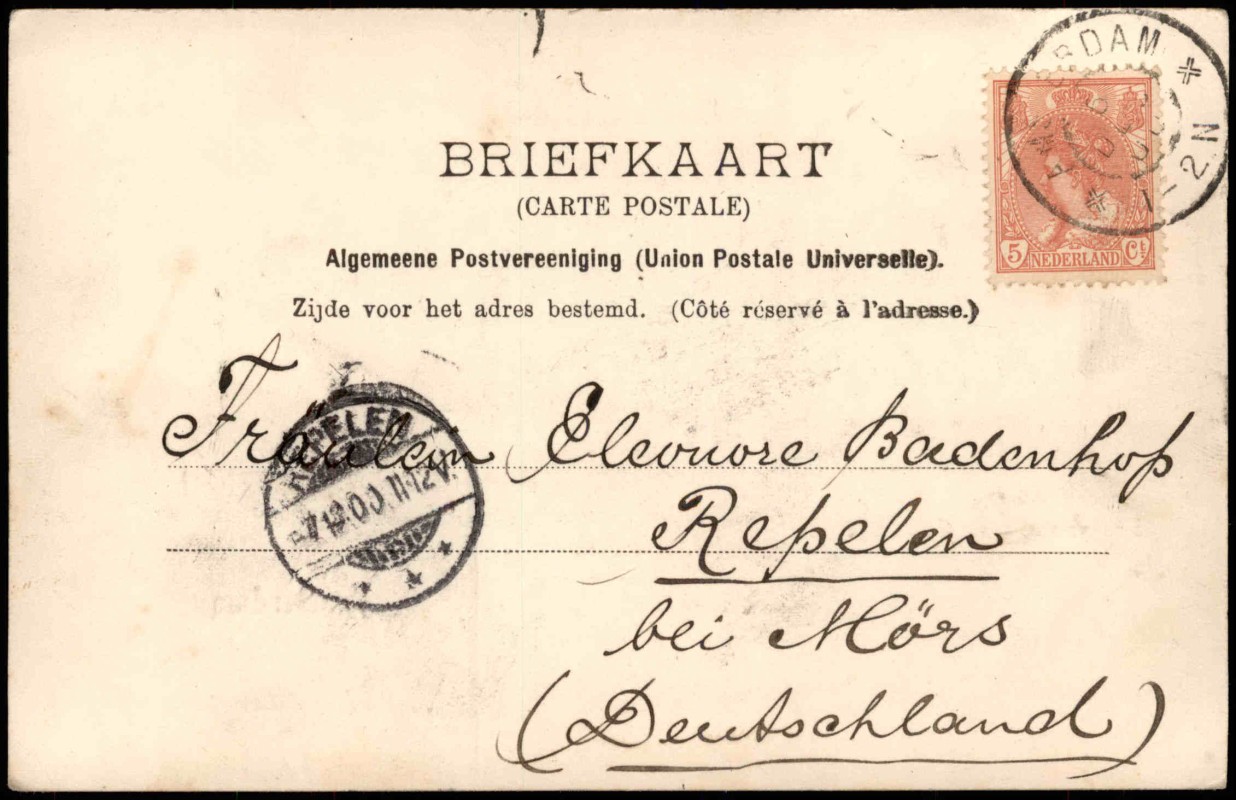 BRIEFKAART
(CARTE POSTALE)
Algemeene Postvereeniging (Union Postale Universelle).
Zijde voor het adres bestemd. (Côté réservé à l'adresse.)
AMSTERDAM
1-2N
5 NEDERLAND Ct
REPELEN
Fräulein Eleonore Badenhop
Repelen
bei Mörs
(Deutschland)